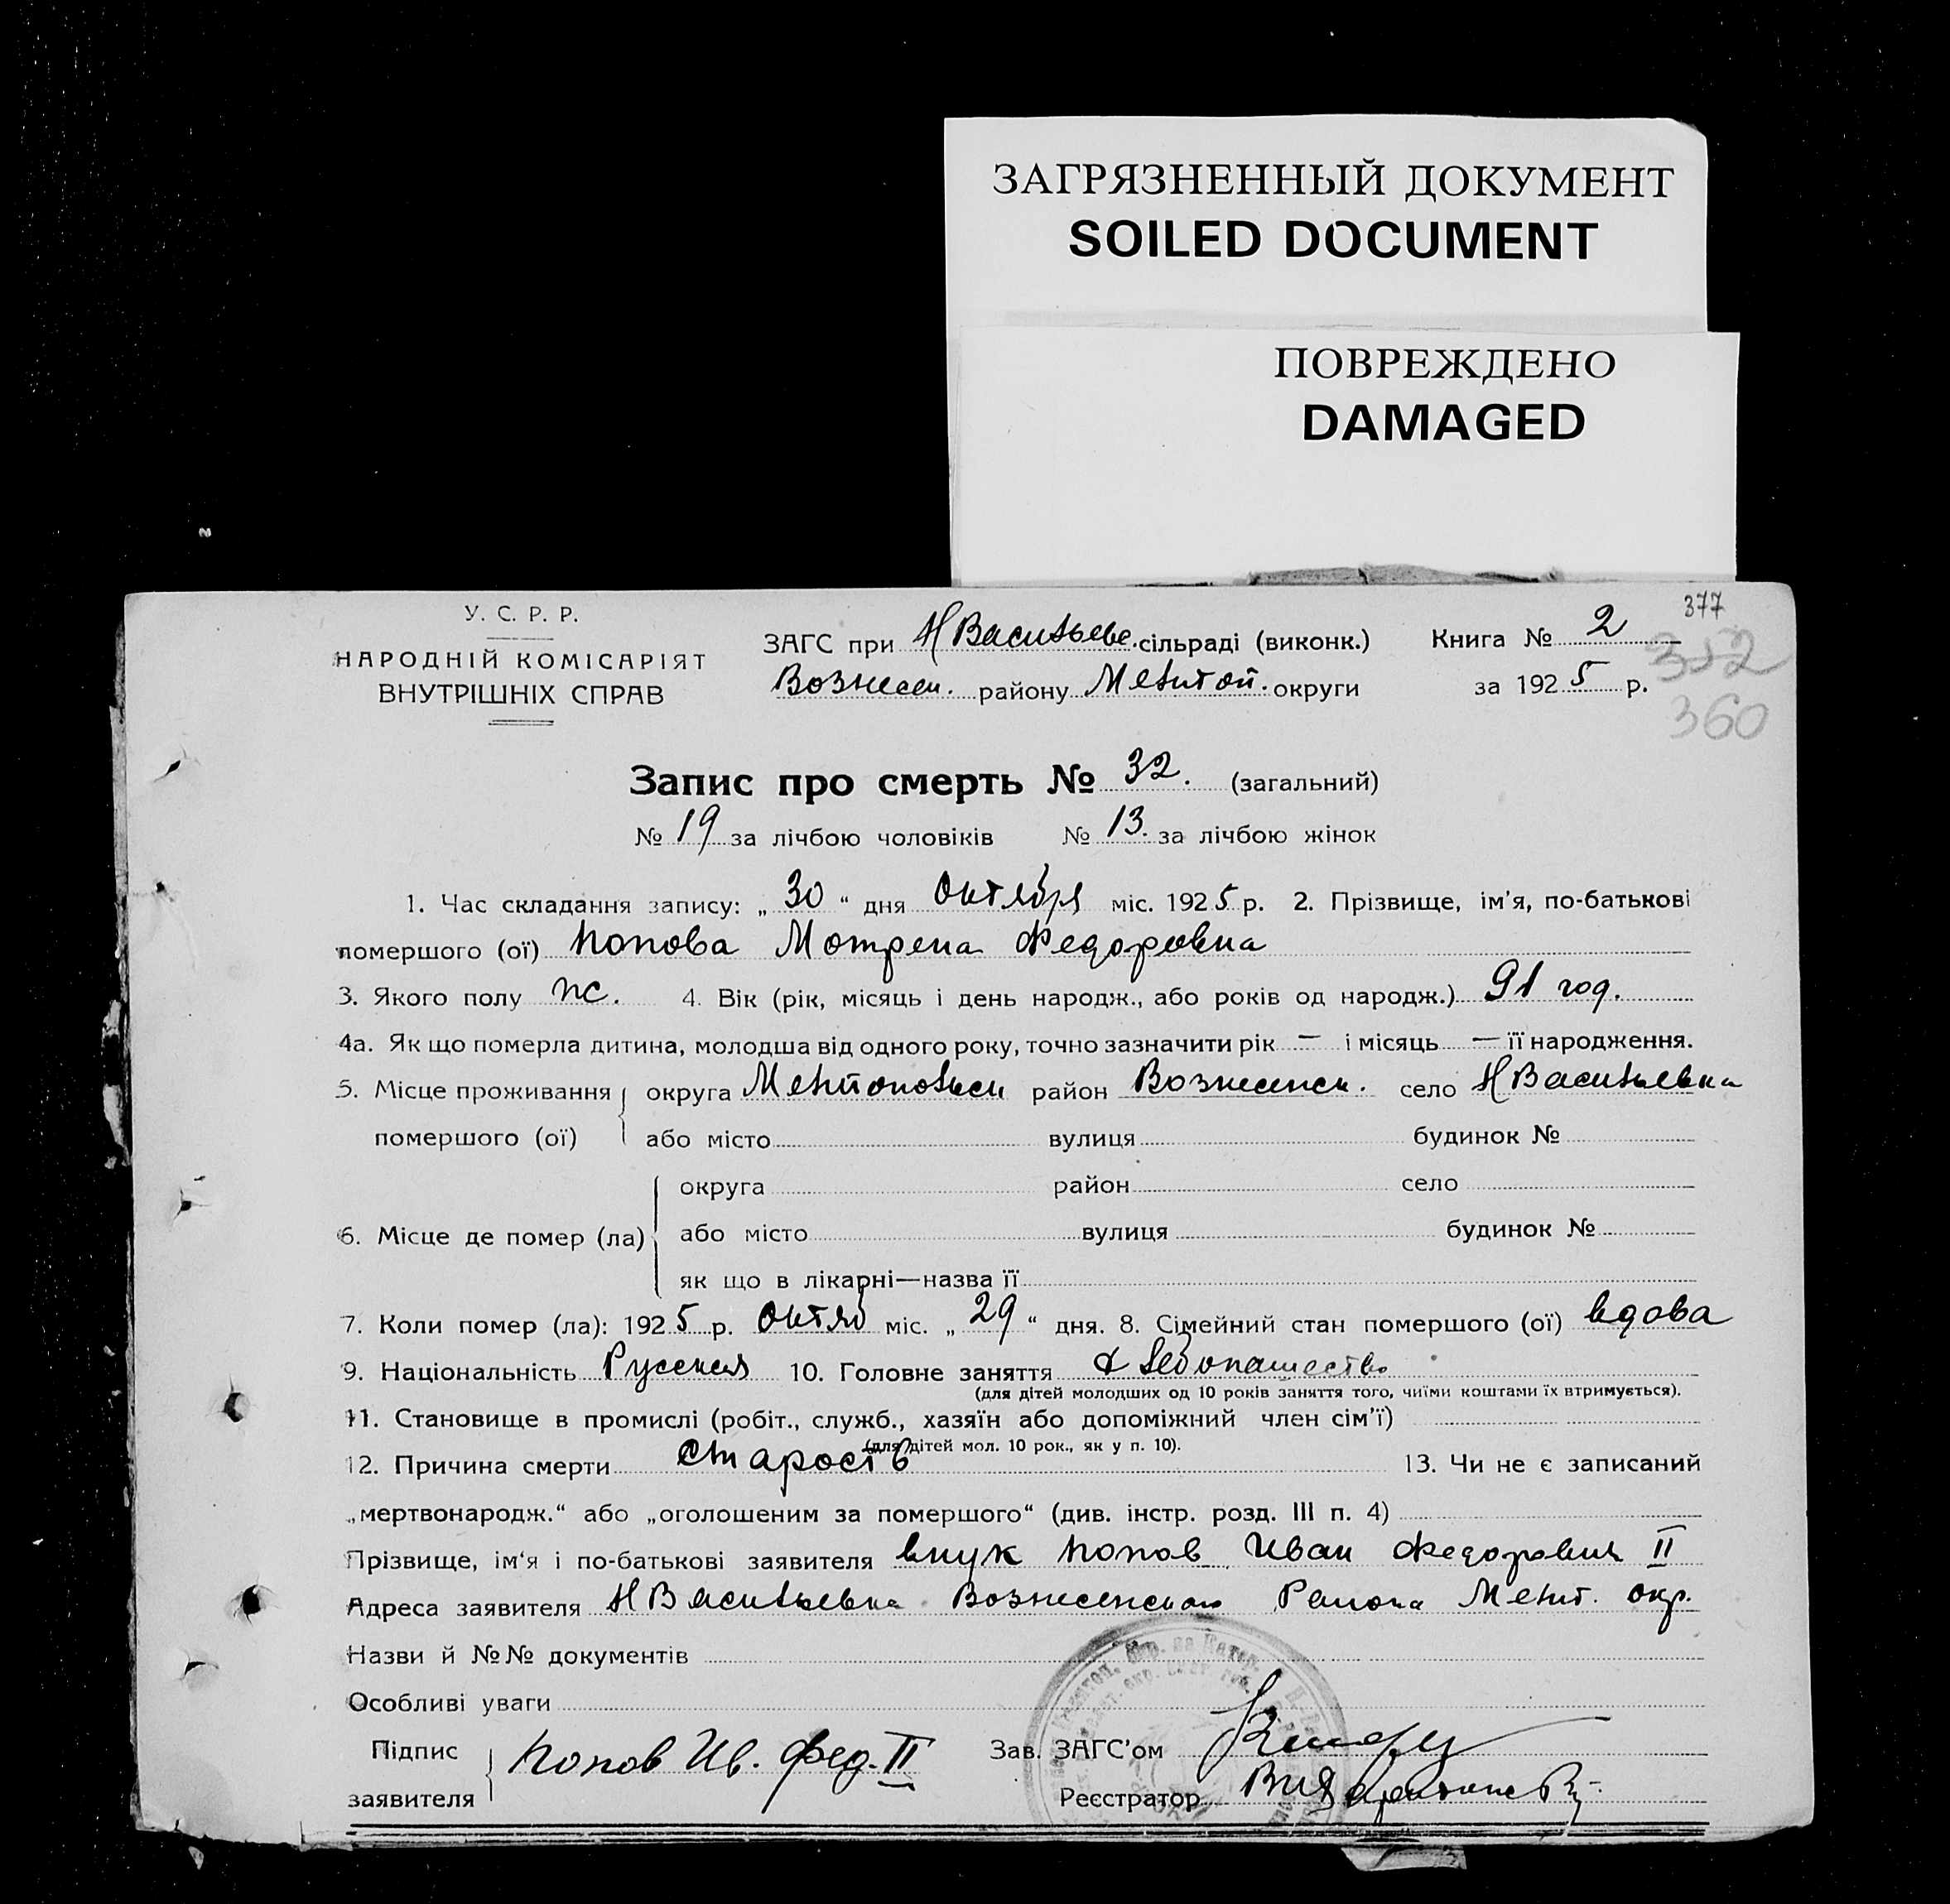 ЗАГРЯЗНЕННЫЙ ДОКУМЕНТ
SOILED DOCUMENT
ПОВРЕЖДЕНО
DAMAGED
377
352
360
У. С. Р. Р.
НАРОДНІЙ КОМІСАРІЯТ
ВНУТРІШНІХ СПРАВ
ЗАГС при НВасильеве. сільраді (виконк.) Книга № 2
Вознесен. району Мелитоп. округи за 1925 р.
Запис про смерть № 32. (загальний)
№ 19 за лічбою чоловіків № 13. за лічбою жінок
1. Час складання запису: „ 30 “ дня Октября міс. 1925 р. 2. Прізвище, ім'я, по-батькові
помершого (ої) Попова Мотрена Федоровна
3. Якого полу ж. 4. Вік (рік, місяць і день народж., або років од народж.) 91 год.
4а. Як що померла дитина, молодша від одного року, точно зазначити рік — і місяць — її народження.
5. Місце проживання округа Мелитопольськ район Вознесенск. село НВасильевка
помершого (ої) або місто вулиця будинок №
округа район село
6. Місце де помер (ла) або місто вулиця будинок №
як що в лікарні—назва її
7. Коли помер (ла): 1925 р. Октяб міс. „ 29 “ дня. 8. Сімейний стан помершого (ої) вдова
9. Національність Русская 10. Головне заняття Хлебопашество
(для дітей молодших од 10 років заняття того, чиїми коштами їх втримується).
11. Становище в промислі (робіт., служб., хазяїн або допоміжний член сім'ї)
(для дітей мол. 10 рок., як у п. 10).
12. Причина смерти Старость 13. Чи не є записаний
„мертвонародж.“ або „оголошеним за помершого“ (див. інстр. розд. III п. 4)
Прізвище, ім'я і по-батькові заявителя внук Попов Иван Федорович II
Адреса заявителя НВасильевка Вознесенского Района Мелит. окр.
Назви й №№ документів
Особливі уваги
Підпис
заявителя Попов Ив. Фед. II
Зав. ЗАГС'ом
Реєстратор